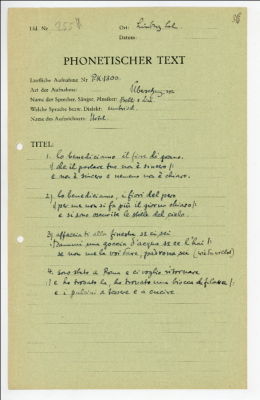 36
Lfd. Nr. 255 Ort:
Datum:
PHONETISCHER TEXT
Lautliche Aufnahme Nr. PK 1300.
Art der Aufnahme:
Name des Sprechers, Sänger, Musiker:
Welche Sprache bezw. Dialekt: umbrisch.
Name des Aufnehmers:
TITEL:
1. Io benediciamo il fior di grano.
che il parlare tuo non è sincero
e non è sincero e nemmeno non è chiaro.
2) Io benediciamo, o fiori del pero
per me non si fa più il giorno chiaro
e si sono oscurite le stelle del cielo.
3) affacciati alla finestra se ci sei
dammi una goccia d'acqua se ce l'hai
se non me la voi dare, padrona sei
4. sono stato a Roma e ci voglio ritornare
e ho trovato la, ho trovato una biocca di
e i pulcini a bevere e a